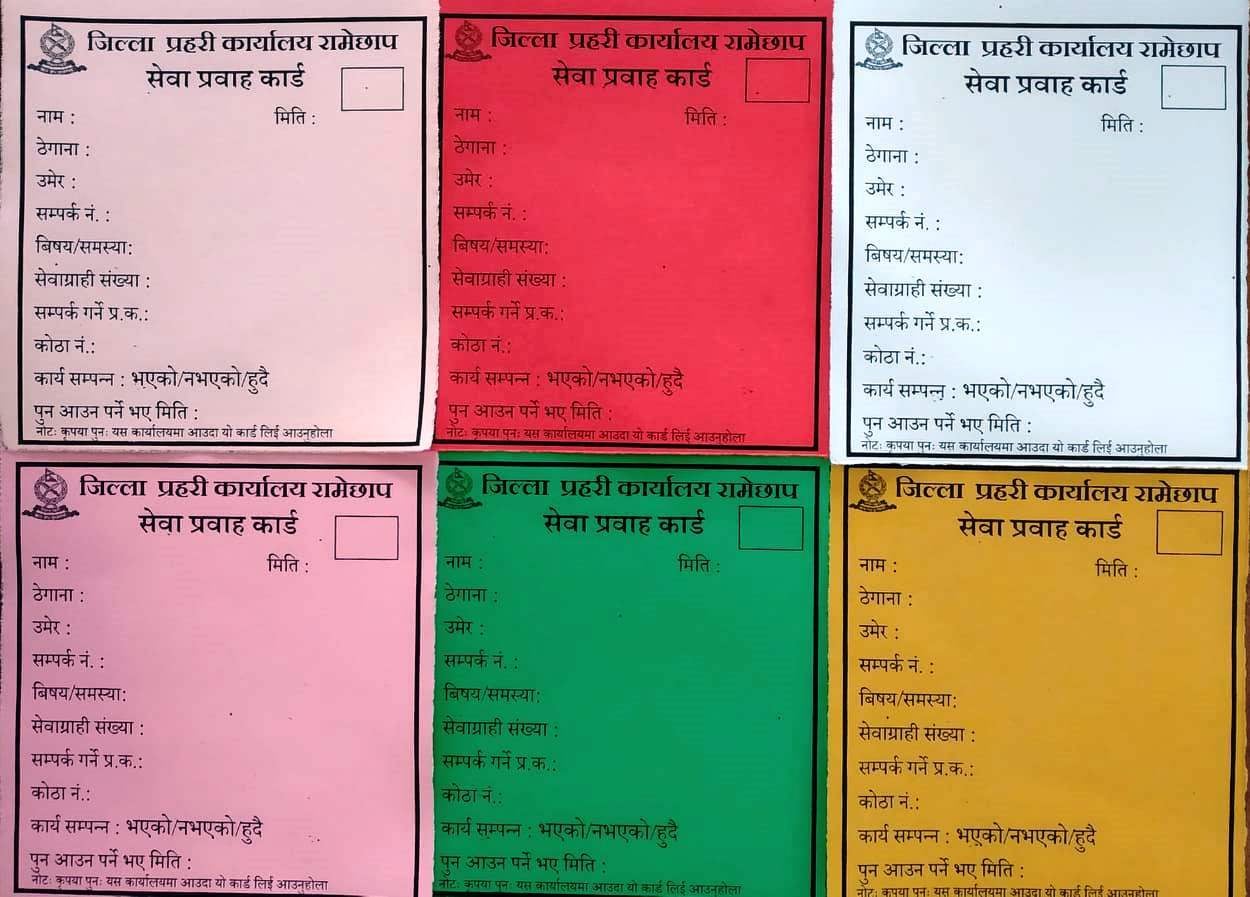 जिल्ला प्रहरी कार्यालय रामेछाप
सेवा प्रवाह कार्ड
नाम : मिति :
ठेगाना :
उमेर :
सम्पर्क नं. :
बिषय/समस्या:
सेवाग्राही संख्या :
सम्पर्क गर्ने प्र.क.:
कोठा नं.:
कार्य सम्पन्न : भएको/नभएको/हुदै
पुन आउन पर्ने भए मिति :
नोटः कृपया पुनः यस कार्यालयमा आउदा यो कार्ड लिई आउनुहोला
जिल्ला प्रहरी कार्यालय रामेछाप
सेवा प्रवाह कार्ड
नाम : मिति :
ठेगाना :
उमेर :
सम्पर्क नं. :
बिषय/समस्या:
सेवाग्राही संख्या :
सम्पर्क गर्ने प्र.क.:
कोठा नं.:
कार्य सम्पन्न : भएको/नभएको/हुदै
पुन आउन पर्ने भए मिति :
नोटः कृपया पुनः यस कार्यालयमा आउदा यो कार्ड लिई आउनुहोला
जिल्ला प्रहरी कार्यालय रामेछाप
सेवा प्रवाह कार्ड
नाम : मिति :
ठेगाना :
उमेर :
सम्पर्क नं. :
बिषय/समस्या:
सेवाग्राही संख्या :
सम्पर्क गर्ने प्र.क.:
कोठा नं.:
कार्य सम्पन्न : भएको/नभएको/हुदै
पुन आउन पर्ने भए मिति :
नोटः कृपया पुनः यस कार्यालयमा आउदा यो कार्ड लिई आउनुहोला
जिल्ला प्रहरी कार्यालय रामेछाप
सेवा प्रवाह कार्ड
नाम : मिति :
ठेगाना :
उमेर :
सम्पर्क नं. :
बिषय/समस्या:
सेवाग्राही संख्या :
सम्पर्क गर्ने प्र.क.:
कोठा नं.:
कार्य सम्पन्न : भएको/नभएको/हुदै
पुन आउन पर्ने भए मिति :
नोटः कृपया पुनः यस कार्यालयमा आउदा यो कार्ड लिई आउनुहोला
जिल्ला प्रहरी कार्यालय रामेछाप
सेवा प्रवाह कार्ड
नाम : मिति :
ठेगाना :
उमेर :
सम्पर्क नं. :
बिषय/समस्या:
सेवाग्राही संख्या :
सम्पर्क गर्ने प्र.क.:
कोठा नं.:
कार्य सम्पन्न : भएको/नभएको/हुदै
पुन आउन पर्ने भए मिति :
नोटः कृपया पुनः यस कार्यालयमा आउदा यो कार्ड लिई आउनुहोला
जिल्ला प्रहरी कार्यालय रामेछाप
सेवा प्रवाह कार्ड
नाम : मिति :
ठेगाना :
उमेर :
सम्पर्क नं. :
बिषय/समस्या:
सेवाग्राही संख्या :
सम्पर्क गर्ने प्र.क.:
कोठा नं.:
कार्य सम्पन्न : भएको/नभएको/हुदै
पुन आउन पर्ने भए मिति :
नोटः कृपया पुनः यस कार्यालयमा आउदा यो कार्ड लिई आउनुहोला